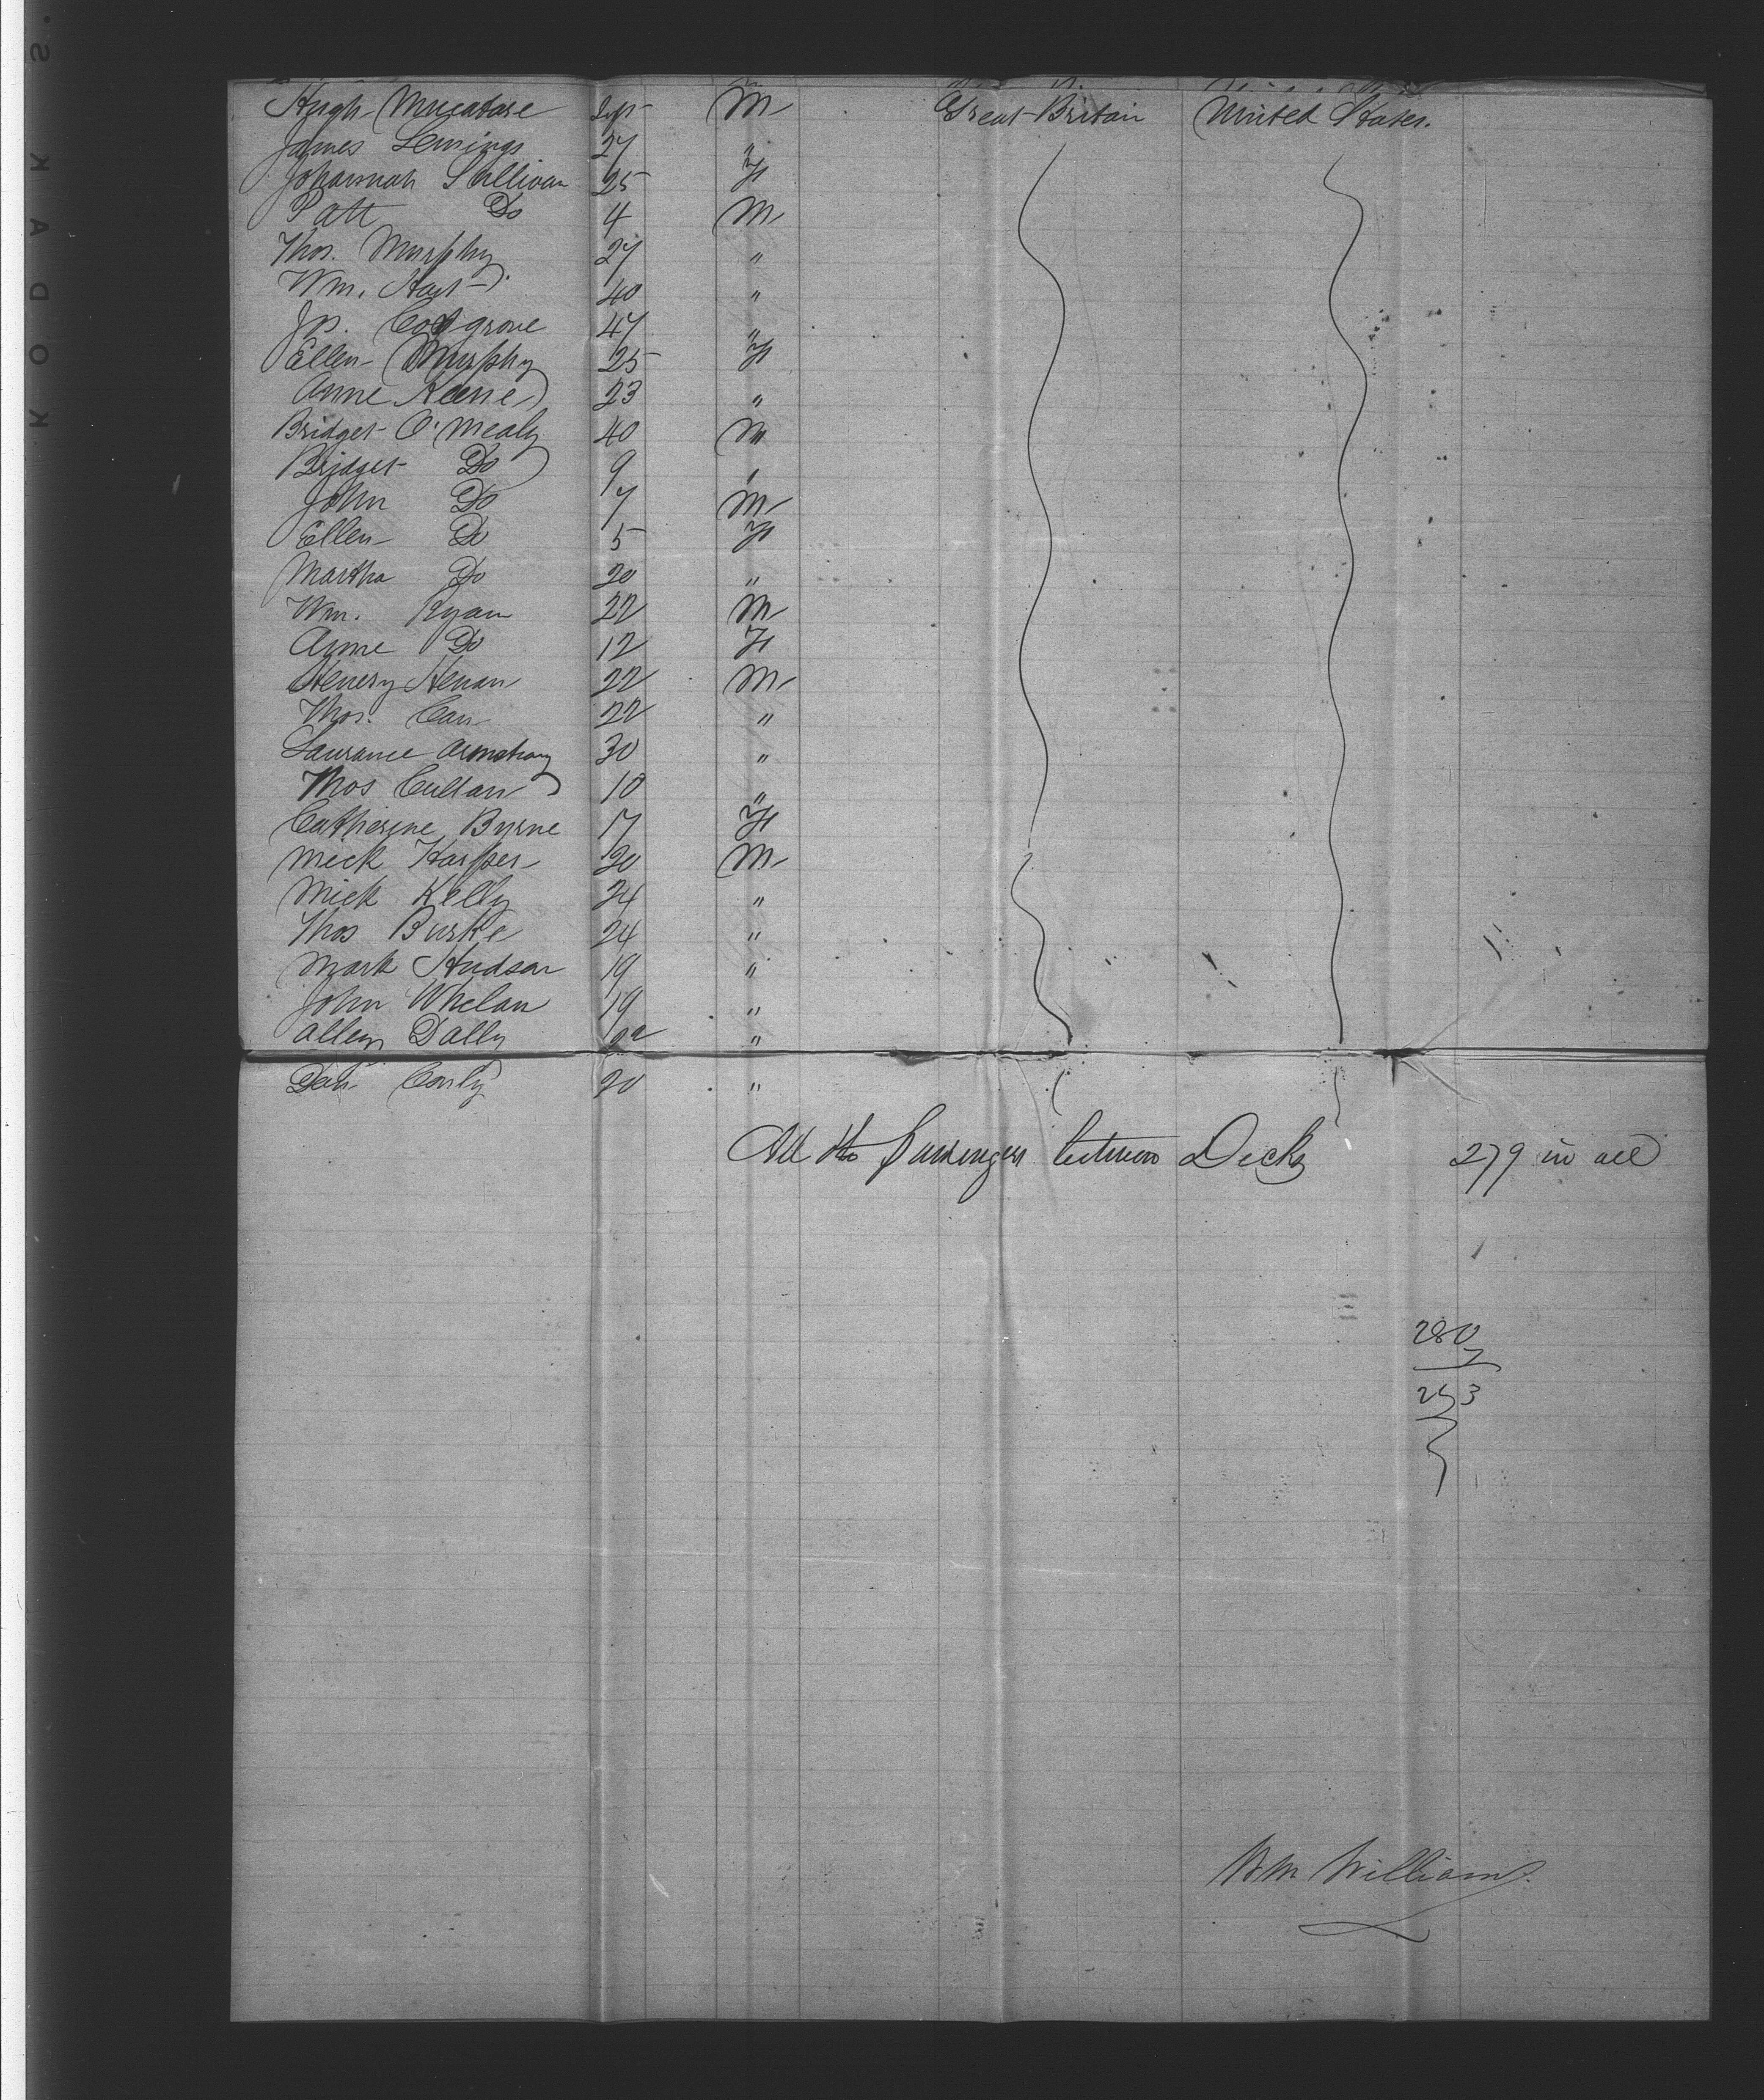 Hugh M 
Great Britain United States.
James Lemings 27 "
Johannah Sullivan 25 F
Patt Do 4 M
Thos. Murphy 27 "
Wm. Hayt 40 "
Js. Cosgrove 47 "
Ellen Murphy 25 F
Anne Keene 23 "
Bridget O'Mealy 40 M
Bridget Do 9 "
John Do 7 M
Ellen Do 5 F
Martha Do 20 "
Wm. Ryan 22 M
Anne Do 12 F
Henery Henan 22 M
Thos. Carr 22 "
Laurance Armstrong 30 "
Thos Cullan 10 "
Catherine Byrne 17 F
Mick Harper 20 M
Mick Kelly 24 "
Thos Burke 24 "
Mark Hudson 19 "
John Whelan 19 "
Allen Dally "
Dan Conly 20 "
All the Passengers between Decks 279 in all
280
7
273
Wm Williams
KODAK S.